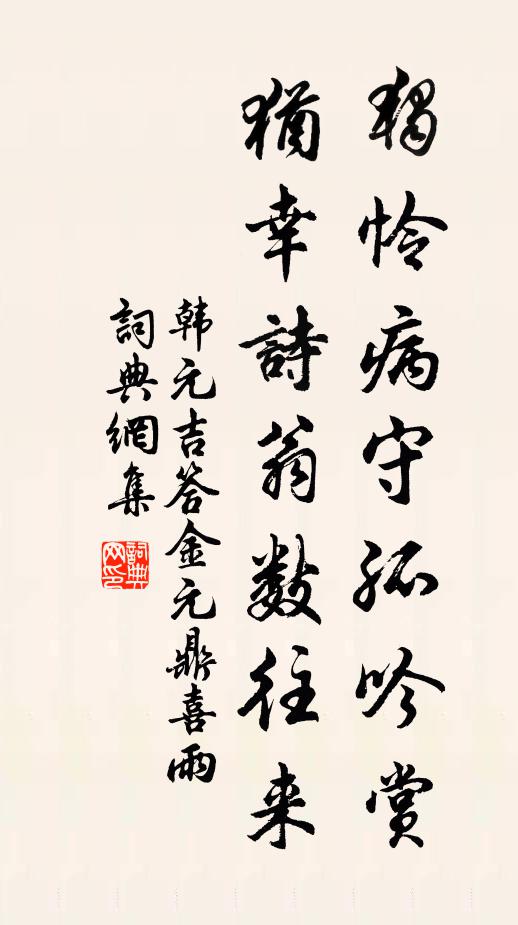 獨怜病守孤吟賞
猶幸詩翁數往来
韩元吉答金元鼎喜雨
詞典網集
詞典网印